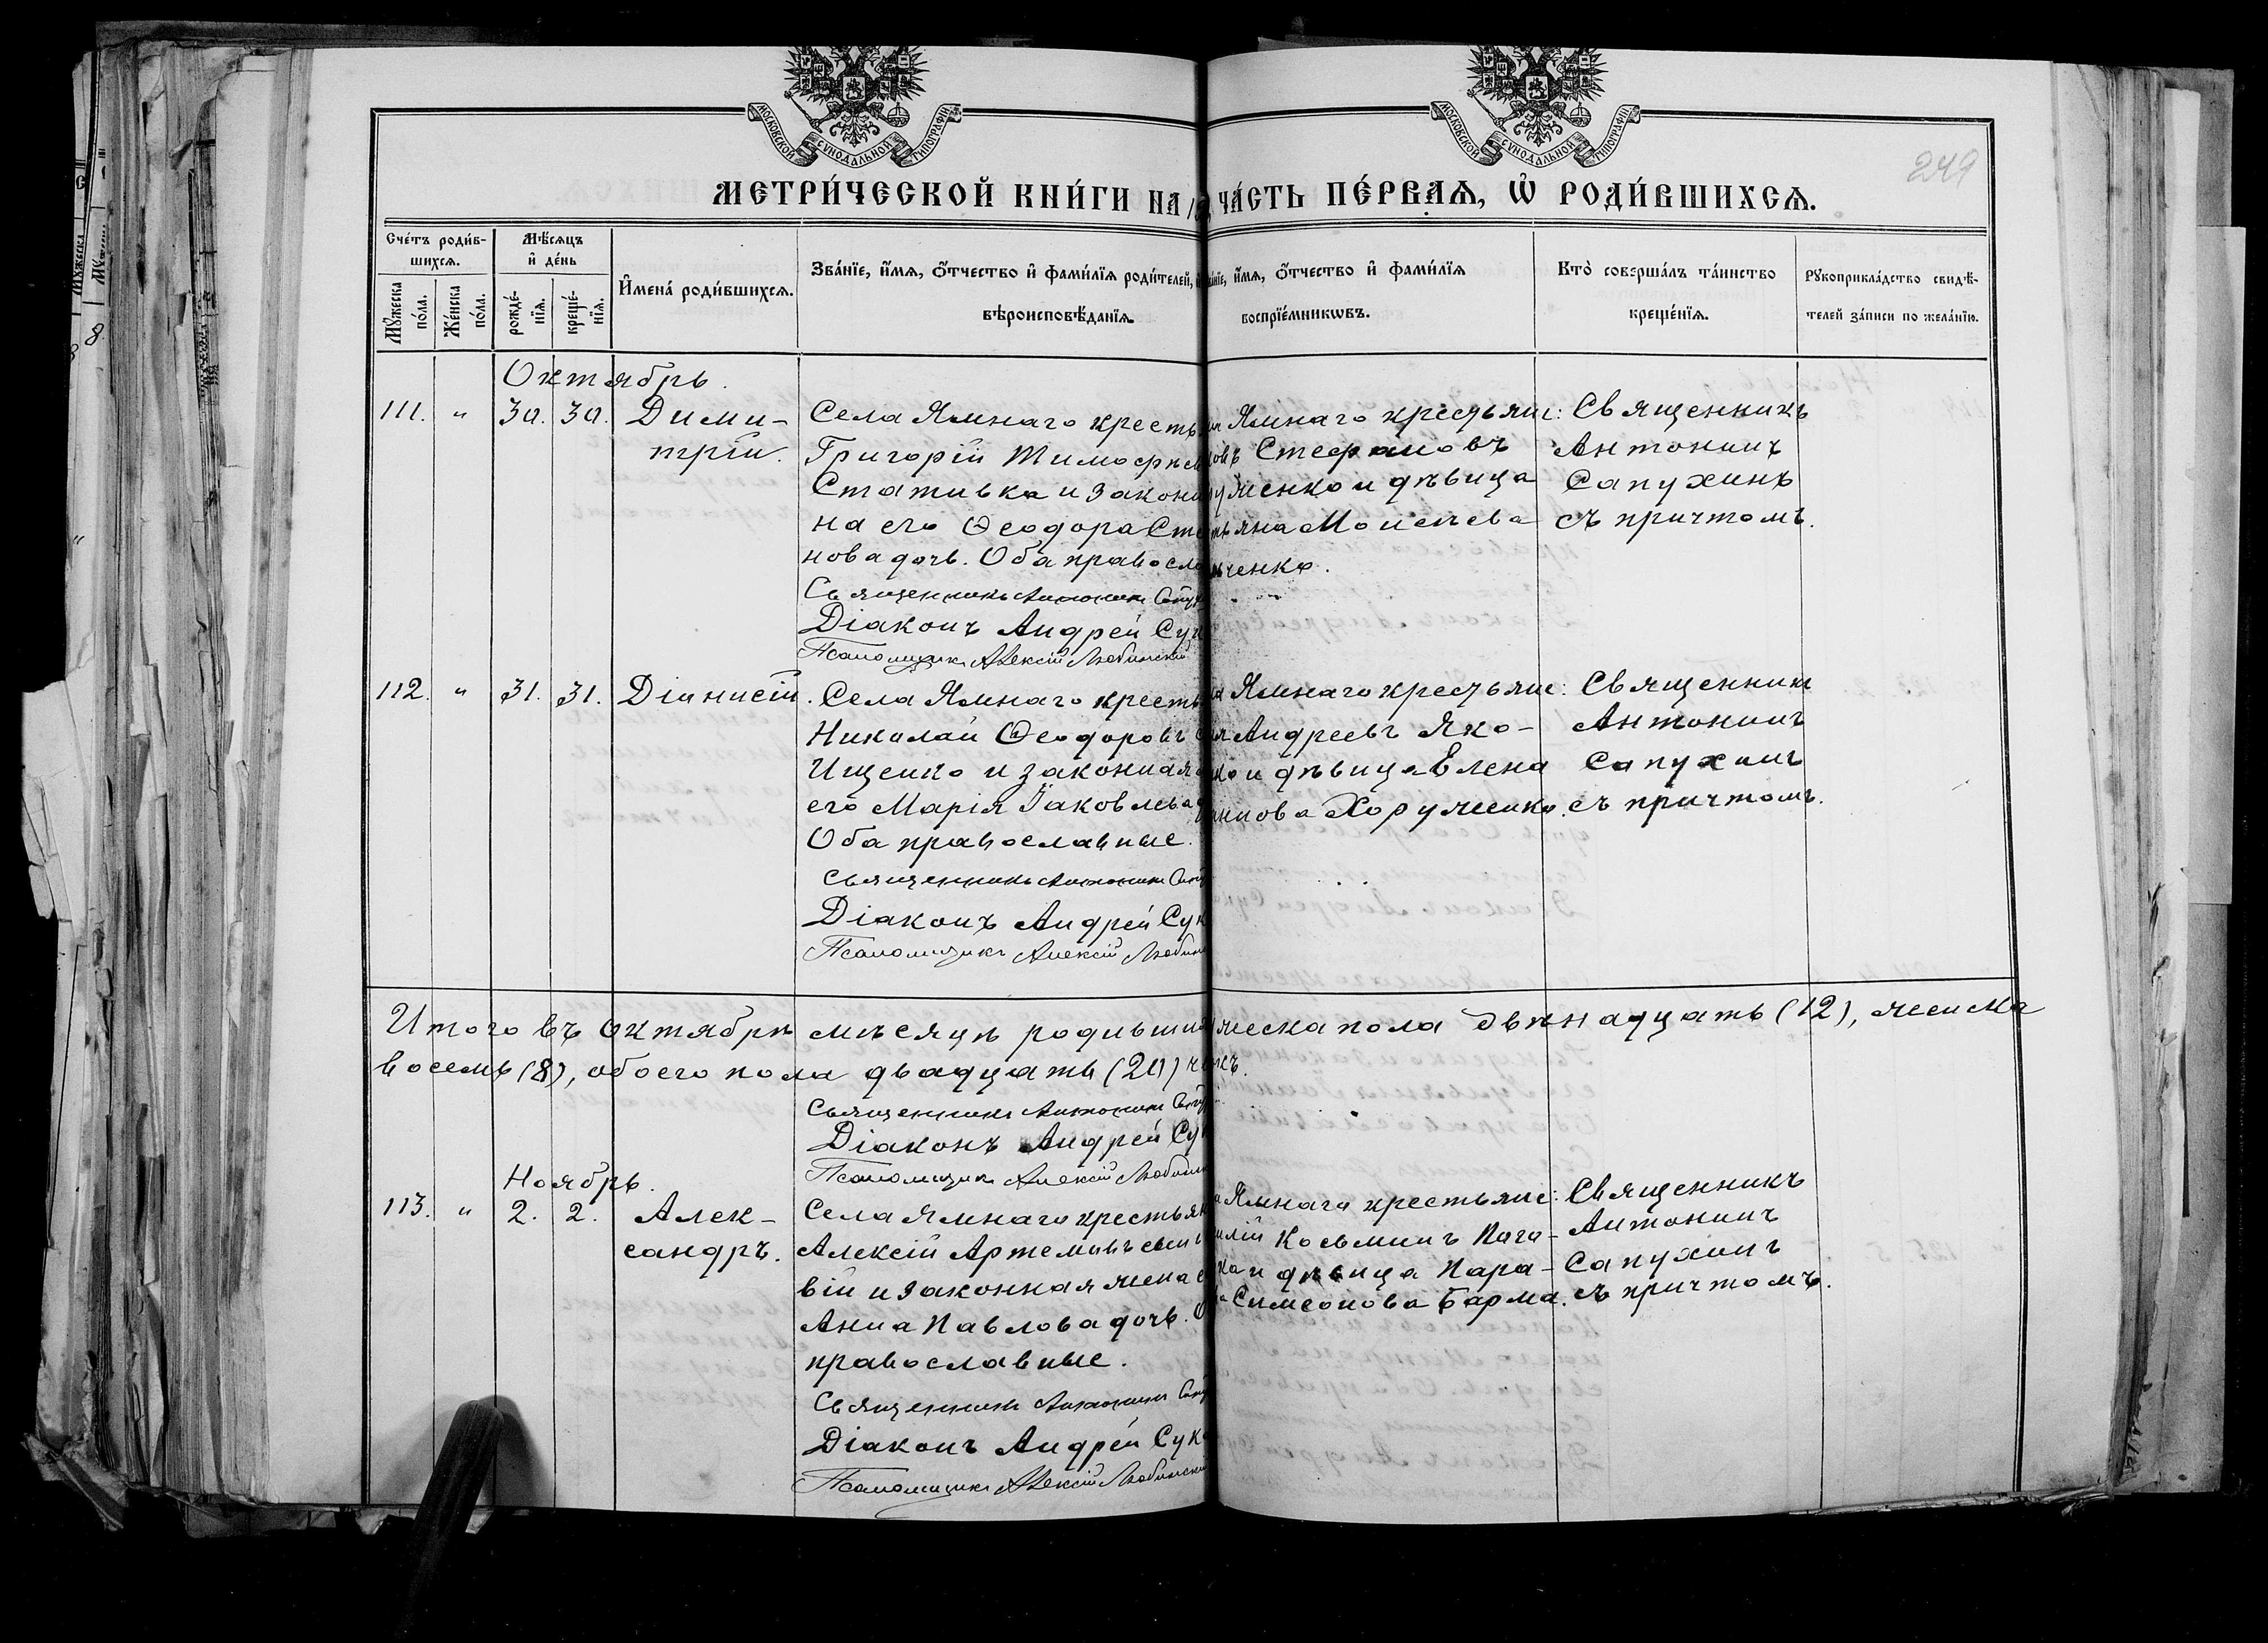 МОСКОВСКОЙ СУНОДАЛЬНОЙ ТИПОГРАФІИ
МОСКОВСКОЙ СУНОДАЛЬНОЙ ТИПОГРАФІИ
249
МЕТРИ́ЧЕСКОЙ КНИ́ГИ НА
ЧА́СТЬ ПЕ́РВАѦ, Ѡ҆ РОДИ́ВШИХСѦ.
Сче́тъ роди́в-
шихсѧ.
Мѣ́сѧцъ
и҆ де́нь
Мꙋ́жеска по́ла.
Же́нска по́ла.
рожде́-
нїѧ.
креще́-
нїѧ.
И҆мена̀ роди́вшихсѧ.
Зва́нїе, и҆́мѧ, ѻ҆́тчество и҆ фами́лїѧ роди́телей,
вѣроисповѣ́данїѧ
и҆́мѧ, ѻ҆́тчество и҆ фами́лїѧ
воспрїе́мникѡвъ.
Кто̀ соверша́лъ та́инство
креще́нїѧ.
Рꙋкоприкла́дство свидѣ́-
телей за́писи по жела́нїю.
Октябрь.
111. " 30. 30. Дими-
трій.
Села Ямнаго кресть
Григорій Тимофѣе
Стативка и закон
на его Ѳеодора Сте
нова дочь. Оба правосла
Священникъ Антонинъ
Діаконъ Андрей Сук
Псаломщикъ Алексій Любинскій
Ямнаго крестьян:
Стефановъ
менко и дѣвица
яна Моисеева
ченко.
Священникъ
Антонинъ
Сапухинъ
съ причтомъ.
112. " 31. 31. Діонисій.
Села Ямнаго кресть
Николай Ѳеодоровъ
Ищенко и законная
его Марія Іаковлева
Оба православные.
Священникъ Антонинъ
Діаконъ Андрей Сук
Псаломщикъ Алексій Любин
Ямнаго крестьян:
Андреевъ Яко-
и дѣвица Елена
Хоруженко.
Священникъ
Антонинъ
Сапухинъ
съ причтомъ.
Итого въ Октябрѣ мѣсяцѣ родивши жеска пола двѣнадцать (12), женска
восемь (8), обоего пола двадцать (20)
Священникъ Антонинъ
Діаконъ Андрей Сук
Псаломщикъ Алексій Любин
Ноябрь.
113. " 2. 2. Алек-
сандръ.
Села Ямнаго крестьян
Алексій Артемовъ
вій и законная жена
Анна Павлова дочь.
православные.
Священникъ Антонинъ
Діаконъ Андрей Сук
Псаломщикъ Алексій Любинскій
Ямнаго крестьян:
Косьминъ
и дѣвица Пара-
Симеонова Барма.
Священникъ
Антонинъ
Сапухинъ
съ причтомъ.